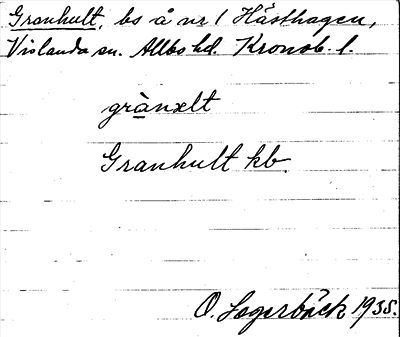 Granhult, bs å nr 1 Hästhagen,
Vislanda sn. Allbo hd. Kronob. l.
grànəlt
Granhult kb.
O. Sagerbäck 1935.